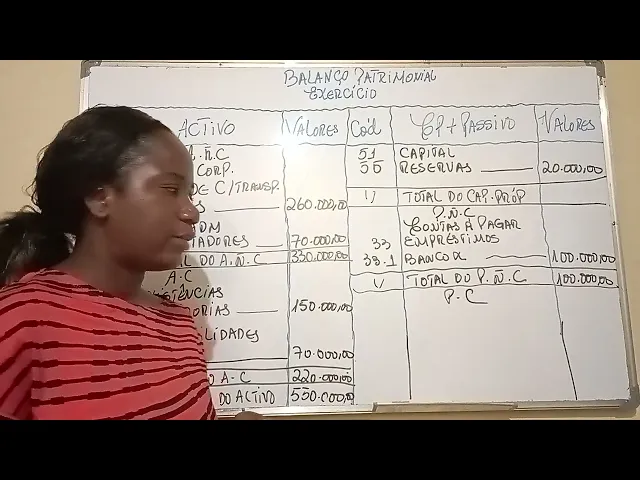 BALANÇO PATRIMONIAL
EXERCÍCIO
ACTIVO VALORES Cód CP + PASSIVO VALORES
A.Ñ.C 51 CAPITAL
CORP. 55 RESERVAS 20.000,00
DE C/TRANSP.
260.000,00 TOTAL DO CAP. PRÓP
P.Ñ.C
CONTAS A PAGAR
TADORES 70.000,00 33 EMPRÉSTIMOS
DO A.Ñ.C 330.000,00 33.1 BANCO X 100.000,00
A.C TOTAL DO P.Ñ.C 100.000,00
TÊNCIAS P.C
ORIAS 150.000,00
ILIDADES
70.000,00
A-C 220.000,00
DO ACTIVO 550.000,00